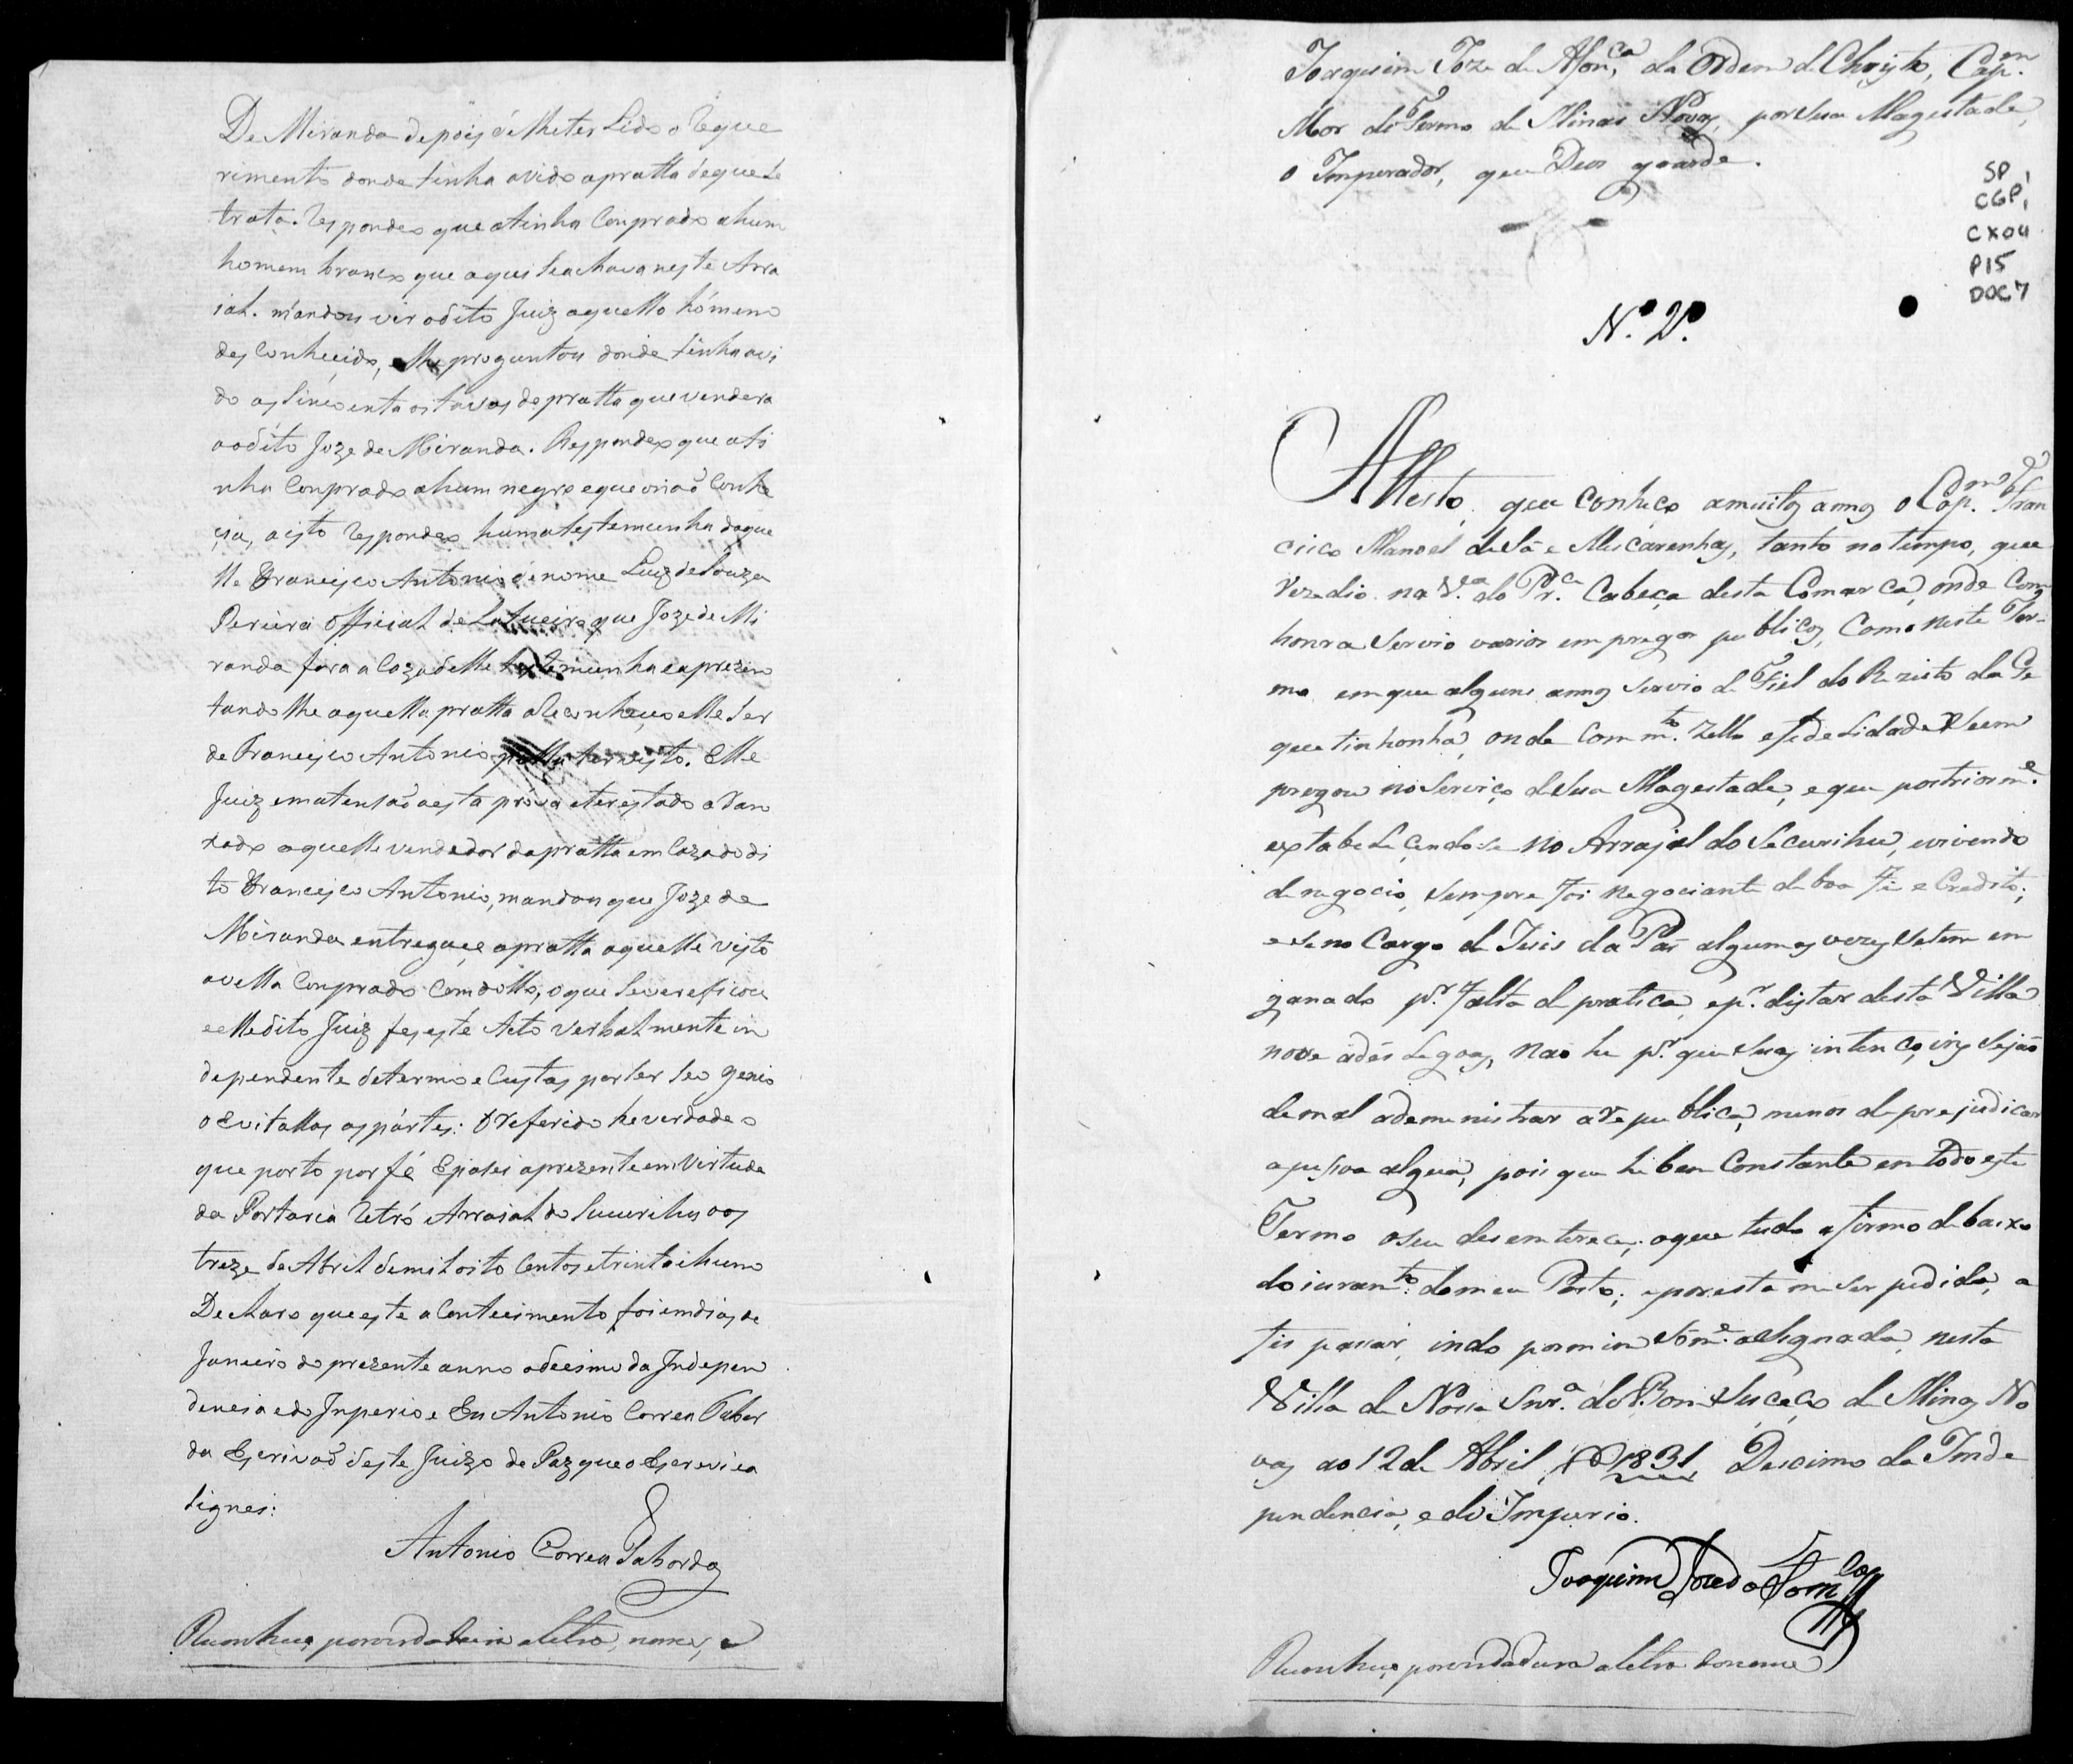 De Miranda depois de lheter Lido o Reque
rimento donde tinha avido apratta deque se
trata. Respondeo que atinha Conprado ahum
homem branco que aqui seachava neste Arra
ial. mandou vir odito Juiz aquelle hómem
desconhecido, elhe proguntou donde tinha avi
do as sincoenta oitavas de pratta que vendera
aodito Joze de Miranda. Respondeo que ati
nha Conprado ahum negro eque onaõ Conhe
cia, aisto Respondeo huma testemunha daque
lle Francisco Antonio de nome Luiz de Souza
Pereira official de Latueiro que Joze de Mi
randa fora a Caza delle testemunha eaprezen
tandolhe aquella pratta aReconheceo elle ser
de Francisco Antonio pella ter visto. Elle
Juiz ematensaõ aesta prova eterestado aRan
xado aquelle vendedor dapratta em Caza do di
to Francisco Antonio, mandou que Joze de
Miranda entregace apratta aquelle visto
avella Conprado Comdollo, oque severeficou
eelledito Juiz fes este Acto verbalmente in
dependente determo e Custas por ser seo genio
o Evitallas as pártes: ORefer­ido he verdade o
que porto por fé Epasei aprezente em Virtude
da Portaria Retró Arraial do Sucurihu aos
treze de Abril de mil oito Centos etrinta ehum
Declaro que este aContecimento foi em dias de
Janeiro do prezente anno odecimo da Indepen
dencia edo Inperio e Eu Antonio Correa Tabor
da Escrivaõ deste Juizo de Paz que o Escrevi ea
signei:
Antonio Correa Taborda
Reconheço por verdadeira aletra, nomes, e
Joaquim Joze da Afon.ca da Ordem de Christo, Cap.m
Mor do Termo de Minas Novas, por Sua Magestade,
o Imperador, que Deos guarde.
SP,
CGP,
CX04
P15
DOC7
N.º 2º.
Attesto, que conheço amuitos annos o Cap.m Fran
cisco Manoel de Sá e Mascarenhas, tanto no tempo, que
Rezedio na V.a do Pr.e Cabeça desta Comarca, onde Com
honra servio varios empregos publicos, Como neste Ter-
mo em que alguns annos servio de Fiel do Rezisto da Ge
quetinhonha, onde Com m.to zello efedelidade seem
pregou no serviço de Sua Magestade, eque postriorm.e
extabeleçendose no Arrajal do Sucurihu, evivendo
de negocio, sempre foi negociante de boa fé e Credito;
e se no Cargo de Juis da Pas algumas vezes setem en
ganado p.r falta de pratica, ep.r distar desta Villa
nove adés Legoas, nao he p.r que suas intençoins sejaõ
de mal ademenistrar aRepublica, menos de prejudicar
apessoa algua, pois que he bem Constante em todo este
Termo oseu desenterece; oque tudo afirmo debaixo
do juram.to domeu Posto; eporesta me ser pedida, a
fis passar, indo por mim som.e assignada, nesta
Villa de Nossa Snr.a do Bom Suceço de Minas No
vas ao 12 de Abril, de 1831 Decimo da Inde
pendencia, e do Imperio.
Joaquim Joze da Afon.ca
Reconheço por verdadeira aletra do nome